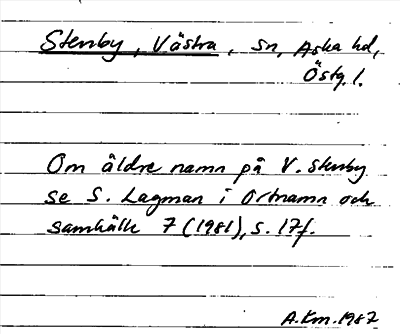 Stenby, Västra, sn, Aska hd,
Östg. l.
Om äldre namn på V. Stenby
se S. Lagman i Ortnamn och
samhälle 7 (1981), s. 17f.
A.Km. 1987